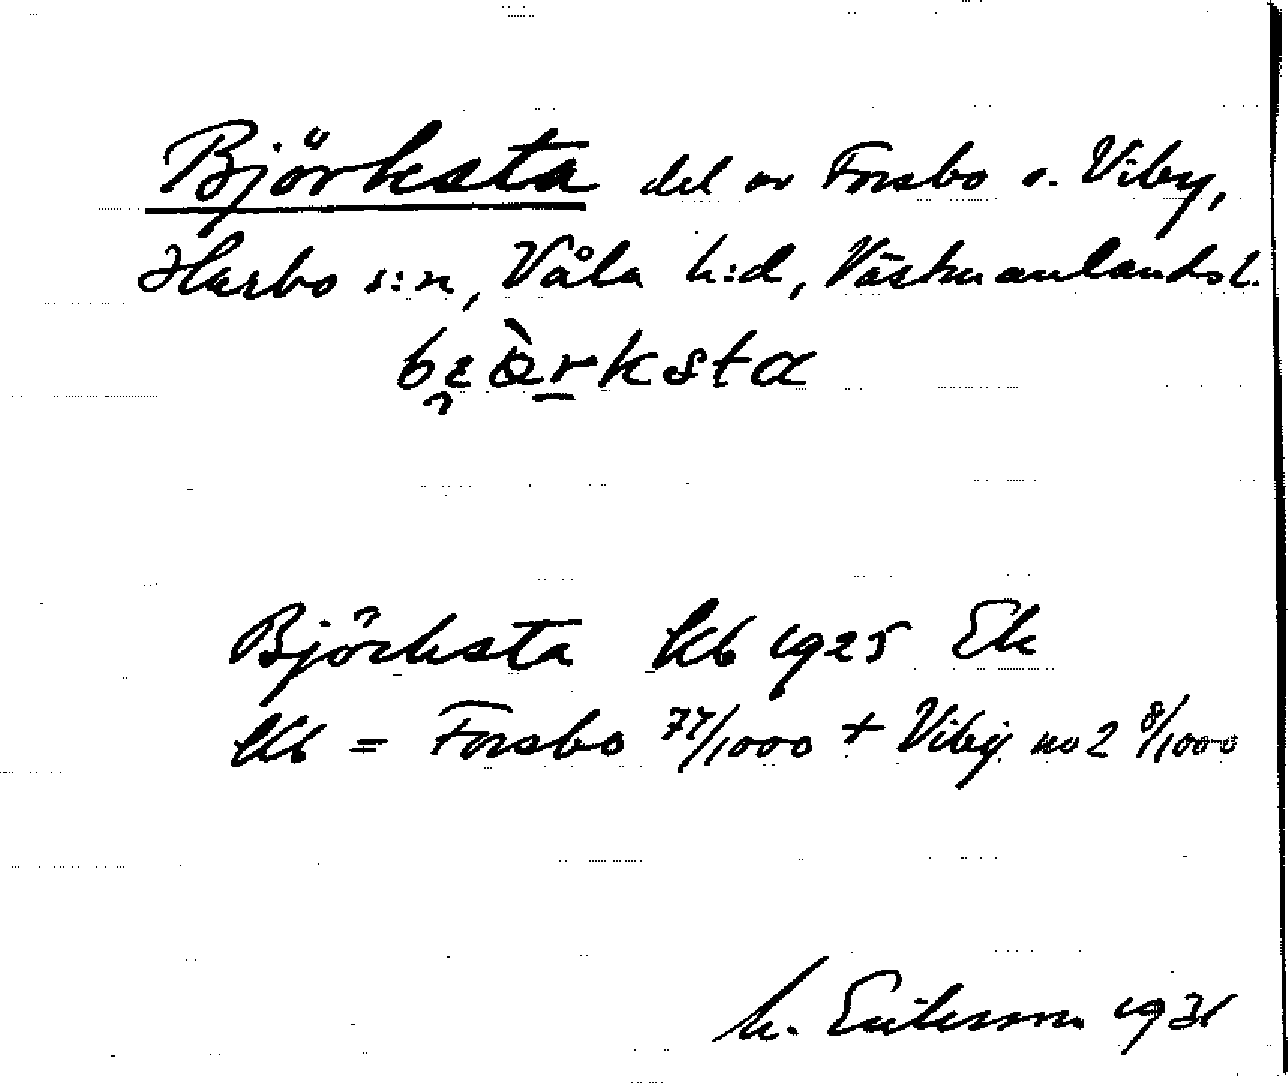 Björksta del av Forsbo o. Viby,
Harbo s:n, Våla h:d, Västmanlands l.
Björksta kb 1925 Ek
kb = Forsbo 77/1000 + Viby no 2 8/1000
M. Eriksson 1931